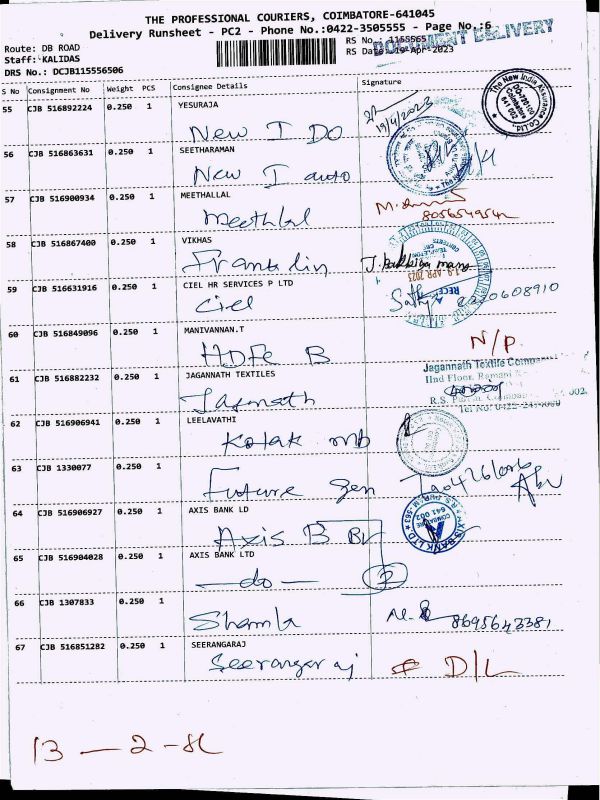 THE PROFESSIONAL COURIERS, COIMBATORE-641045
Delivery Runsheet - PC2 - Phone No.:0422-3505555 - Page No.:6
Route: DB ROAD
Staff: KALIDAS
DRS No.: DCJB115556506
RS No.: 1155565
RS Date: 19-Apr-2023
DOCUMENT DELIVERY
S No Consignment No Weight PCS Consignee Details Signature
55 CJB 516892224 0.250 1 YESURAJA
New I DO 19/4/2023
The New India Assurance Co.Ltd.
Coimbatore 641 002
56 CJB 516863631 0.250 1 SEETHARAMAN
New I auto
57 CJB 516900934 0.250 1 MEETHALLAL
Meethlal
58 CJB 516867400 0.250 1 VIKHAS
Franklin
59 CJB 516631916 0.250 1 CIEL HR SERVICES P LTD
Ciel
60 CJB 516849096 0.250 1 MANIVANNAN.T
HDFC B N/P.
61 CJB 516882232 0.250 1 JAGANNATH TEXTILES
Jagannath Textile
IInd Floor, Ramani
62 CJB 516906941 0.250 1 LEELAVATHI
Kotak mb
63 CJB 1330077 0.250 1
Future gen
64 CJB 516906927 0.250 1 AXIS BANK LD
Axis B Br
AXIS BANK LTD
COIMBATORE 641 002
65 CJB 516904028 0.250 1 AXIS BANK LTD
— do — 2
66 CJB 1307833 0.250 1
Shamla 8695643381
67 CJB 516851282 0.250 1 SEERANGARAJ
Seerangaraj D/L
13 — 2 - 8L